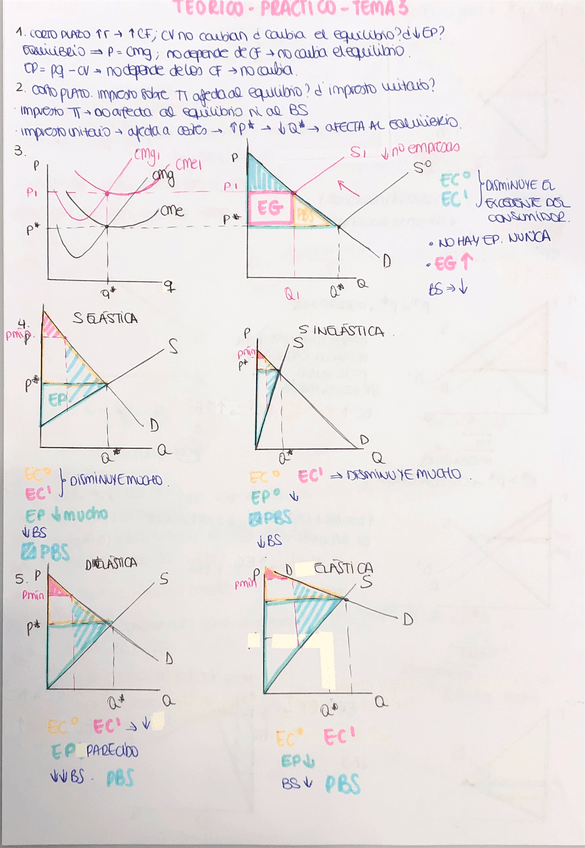 TEÓRICO - PRÁCTICO - TEMA 3
1. CORTO PLAZO ↑T → ↑CF; CV no cambian ¿cambia el equilibrio? ¿↓EP?
EQUILIBRIO ⇒ P = Cmg; no depende de CF → no cambia el equilibrio.
EP = pq - CV → no depende de los CF → no cambia.
2. CORTO PLATO. Impuesto sobre Π afecta al equilibrio? ¿ impuesto unitario?
· impuesto Π → no afecta al equilibrio ni al BS
· impuesto unitario → afecta a costes → ↑P* → ↓Q* → AFECTA AL EQUILIBRIO.
3.
P
cmg1
cme1
cmg
cme
P1
P*
q*
q
P
S1
↓nº empresas
S0
P1
P*
EG
PBS
D
Q1
Q*
Q
EC0
EC1
DISMINUYE EL
EXCEDENTE DEL
CONSUMIDOR.
• NO HAY EP. NUNCA
• EG ↑
BS → ↓
4.
S ELÁSTICA
pmin
P*
EP
S
D
Q*
Q
EC0
EC1
DISMINUYE MUCHO.
EP ↓ mucho
↓BS
PBS
S INELÁSTICA.
P
S
pmin
P*
D
Q*
Q
EC0 EC1 → DISMINUYE MUCHO.
EP0 ↓
PBS
↓BS
5.
P
ELÁSTICA
S
Pmin
P*
D
Q*
Q
EC0 EC1 → ↓
EP PARECIDO
↓↓BS. PBS
P
D ELÁSTICA
Pmin
S
D
Q*
Q
EC0 EC1
EP↓
BS↓ PBS